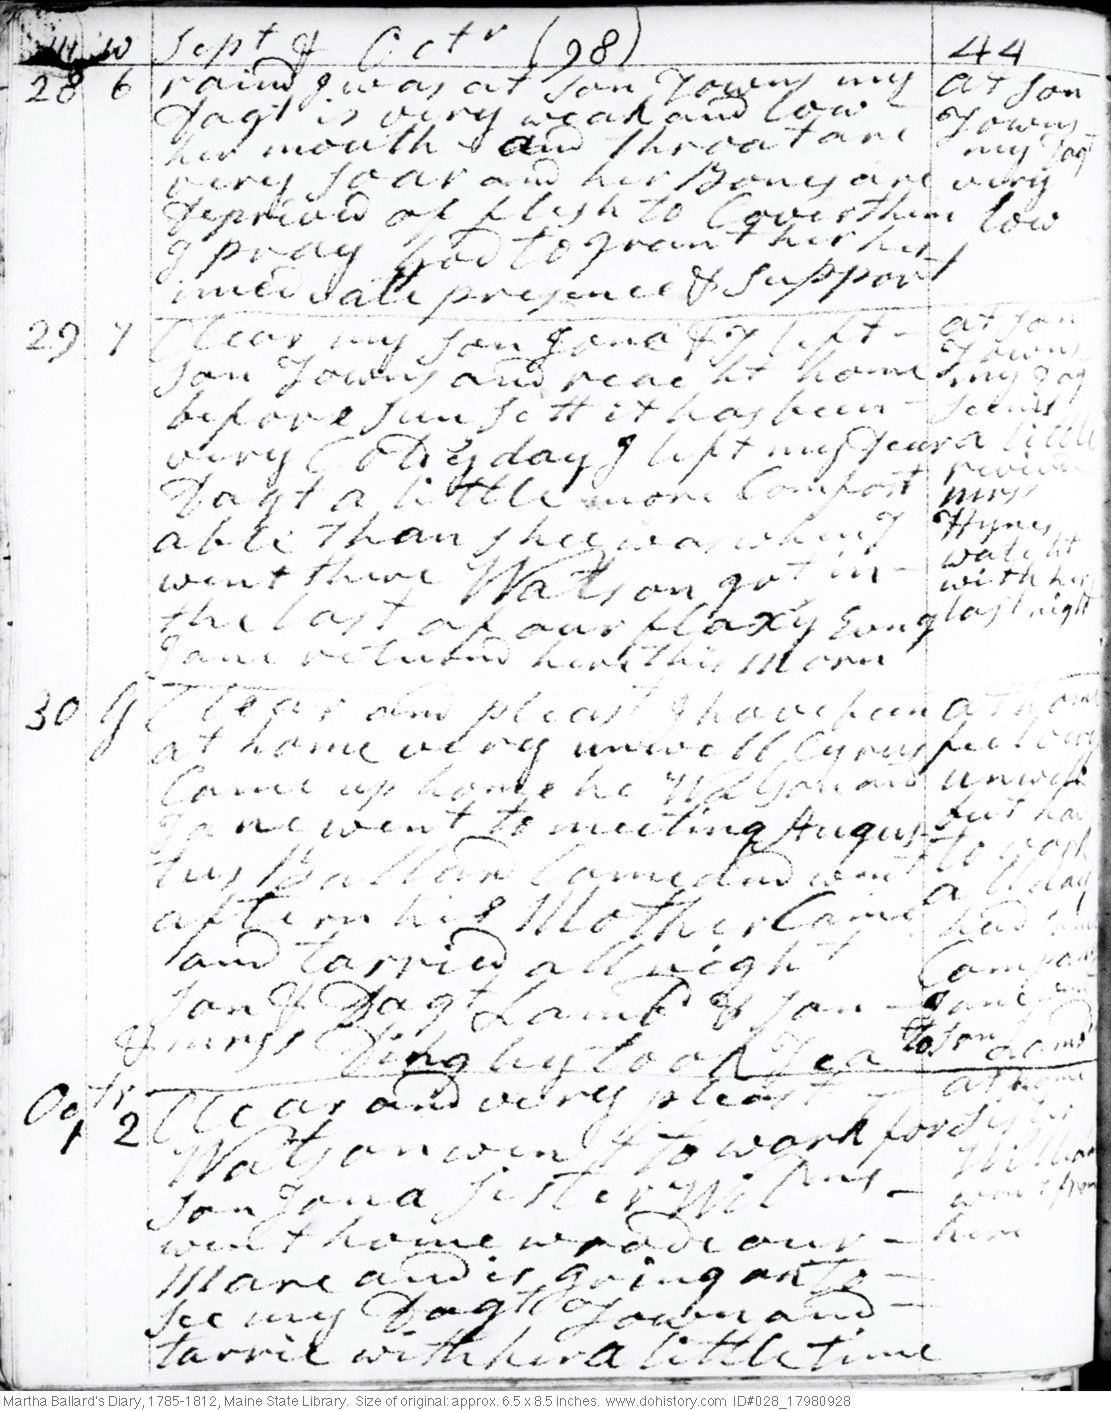 m w Sept & Octr (98) 44
28 6 raind I was at son Towns my at son
Dagt is very weak and low Towns
her mouth and throat are my Dagt
very soar and her Bones are very
deprivd of flesh to Cover them low
I pray God to grant her his
imediate presence & support
29 7 Clear my son Jona & I left at son
son Towns and reacht home Towns
before sun sett it has been my Dag
very Coldy day I left my Dear seems a little
Dagt a little more Comfort reviv
able than shee was when I mrss Hynes
went there Watson got in watcht
the last of our flax with her
Jane returnd here this morn last night
30 G Clear and pleast I have been at home
at home very unwell Cyrus feel very
Came up home he Watson and unwell
Jane went to meeting Augus but had
tus Ballard Came and went to wash
aftern his Mother Came all day
and tarried all night had
son & Dagt Lamb & son Company
& mrss Dinghy took Tea Jane
to son Lambd
Octr
1 2 Clear and very pleast at home
Watson went to work for sister
son Jona sister Wilms William
went home wrode our went from
Mare and is going on to here
see my Dagt Town and
tarrie with her a little time
Martha Ballard's Diary, 1785-1812, Maine State Library. Size of original: approx. 6.5 x 8.5 inches. www.dohistory.com ID#028_17980928